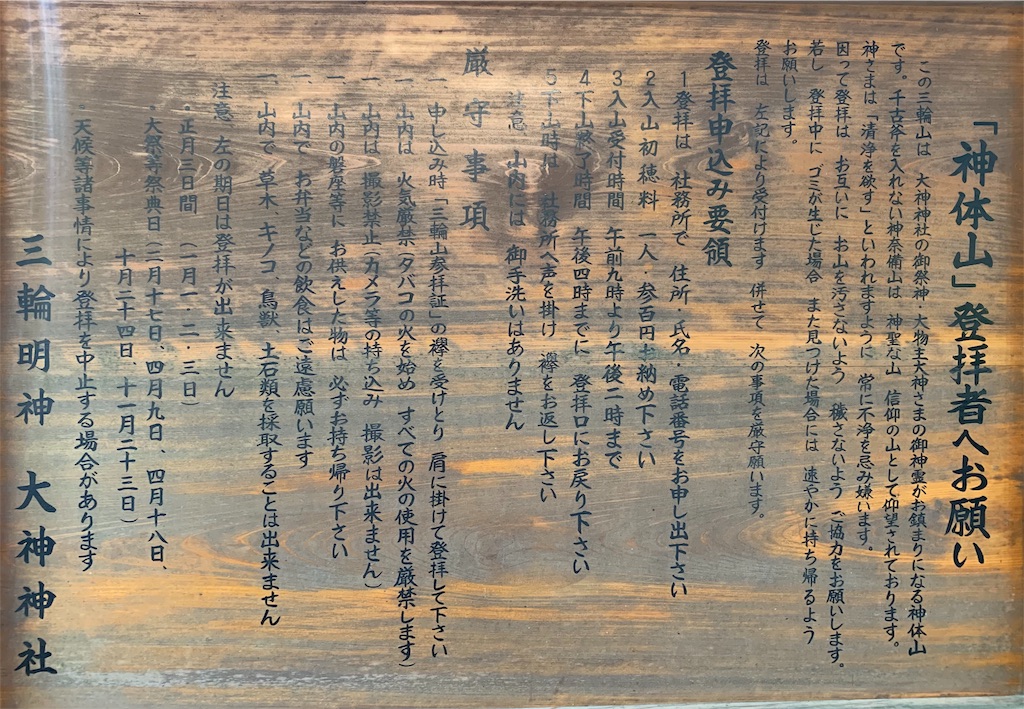 「神体山」登拝者へお願い
この三輪山は 大神神社の御祭神 大物主大神さまの御神霊がお鎮まりになる神体山
です。千古斧を入れない神奈備山は 神聖な山 信仰の山として仰望されております。
神さまは「清浄を欲す」といわれますように 常に不浄を忌み嫌います。
因って登拝は お互いに お山を汚さないよう 穢さないよう ご協力をお願いします。
若し 登拝中に ゴミが生じた場合 また見つけた場合には 速やかに持ち帰るよう
お願いします。
登拝は 左記により受付けます 併せて 次の事項を厳守願います。
登拝申込み要領
1 登拝は 社務所で 住所・氏名・電話番号をお申し出下さい
2 入山初穂料 一人・参百円お納め下さい
3 入山受付時間 午前九時より午後二時まで
4 下山終了時間 午後四時までに 登拝口にお戻り下さい
5 下山時は 社務所へ声を掛け 襷をお返し下さい
注意 山内には 御手洗いはありません
厳守事項
一、申し込み時「三輪山参拝証」の襷を受けとり 肩に掛けて登拝して下さい
一、山内は 火気厳禁(タバコの火を始め すべての火の使用を厳禁します)
一、山内は 撮影禁止(カメラ等の持ち込み 撮影は出来ません)
一、山内の磐座等に お供えした物は 必ずお持ち帰り下さい
一、山内で お弁当などの飲食はご遠慮願います
一、山内で 草木、キノコ、鳥獣、土石類を採取することは出来ません
注意 左の期日は登拝が出来ません
・正月三日間 (一月一・二・三日)
・大祭等祭典日(二月十七日、四月九日、四月十八日、
十月二十四日、十一月二十三日)
・天候等諸事情により登拝を中止する場合があります
三輪明神 大神神社